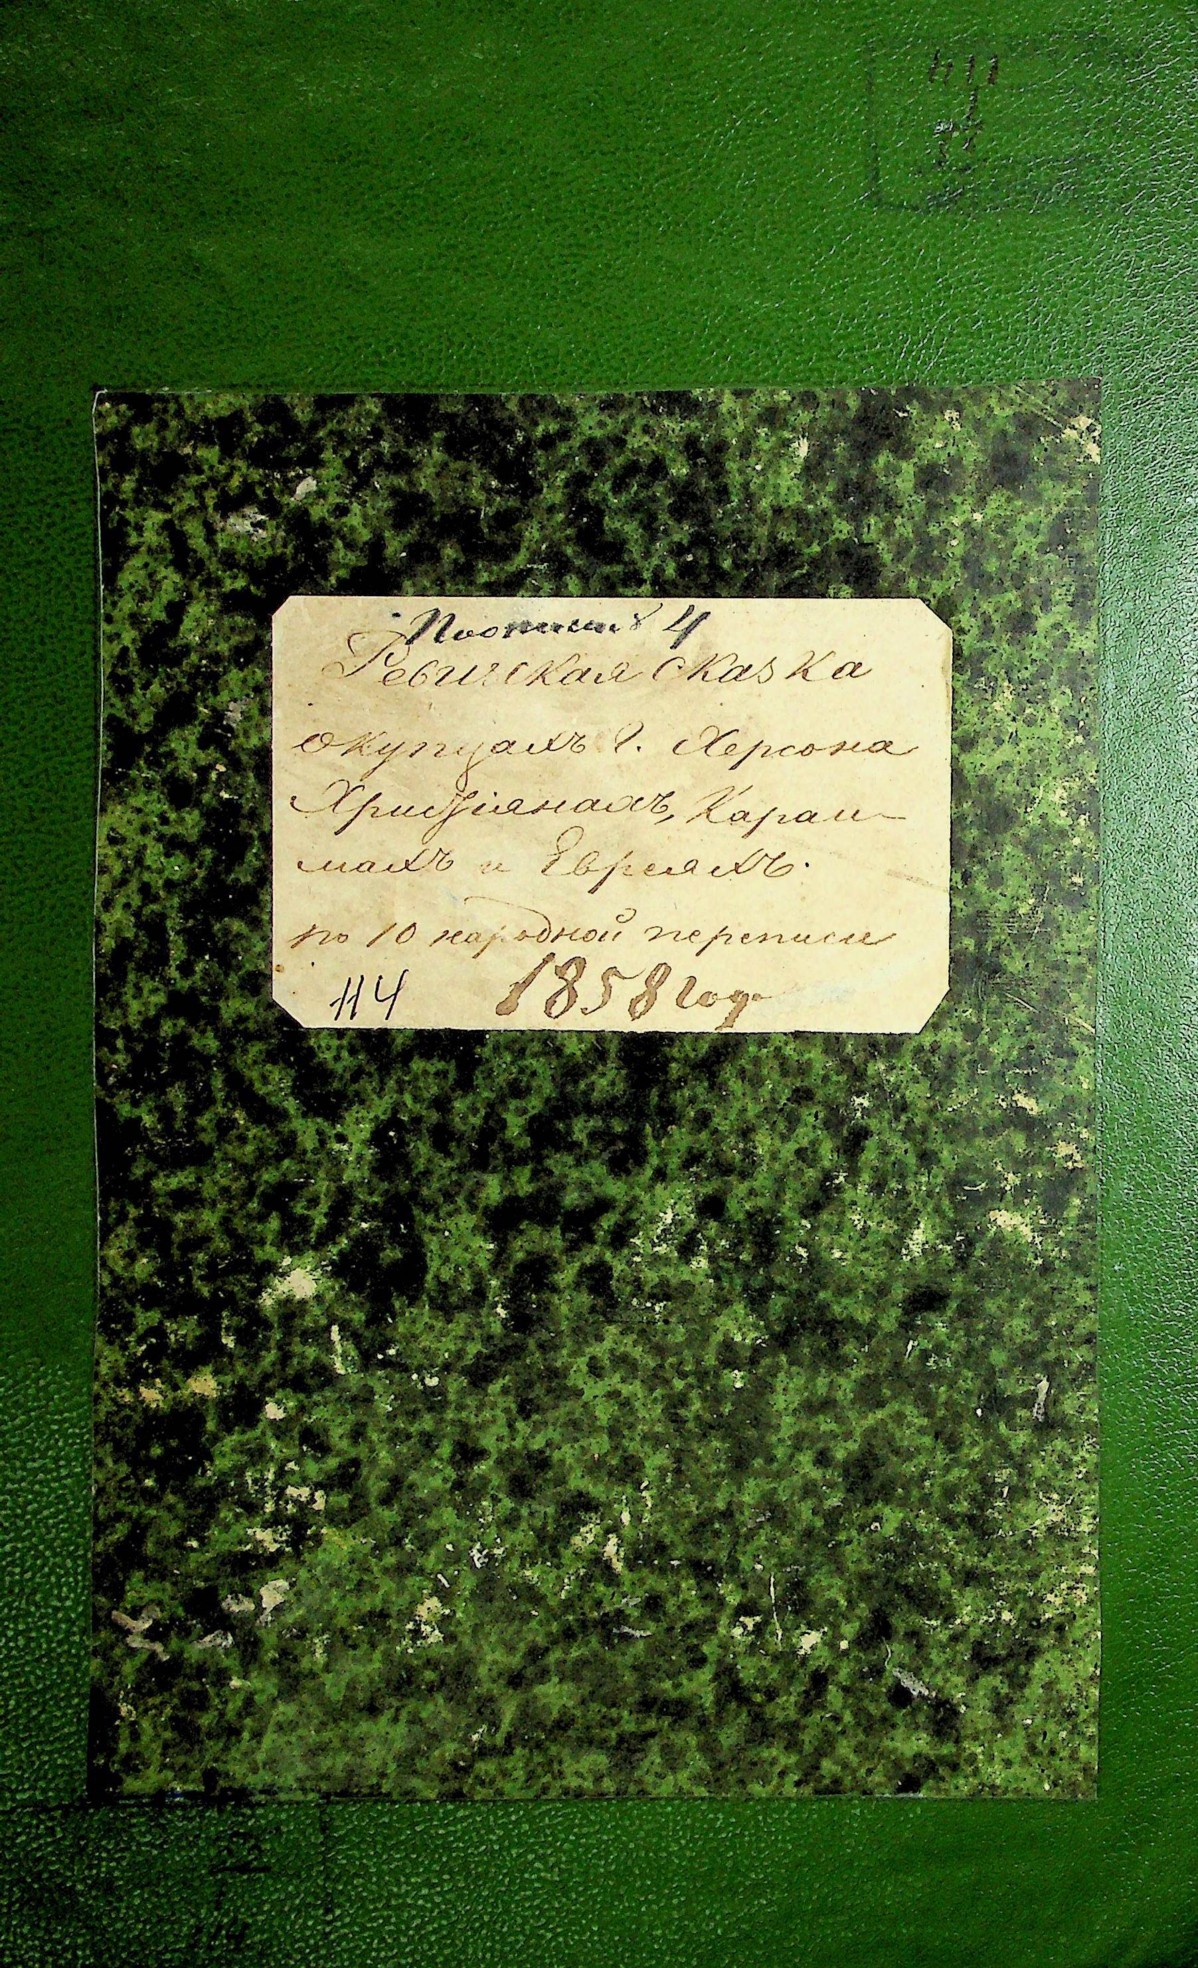 4
Ревизская сказка
о купцахъ г. Херсона
Христіянахъ, Караи-
махъ и Евреяхъ.
по 10 народной переписи
114 1858 года